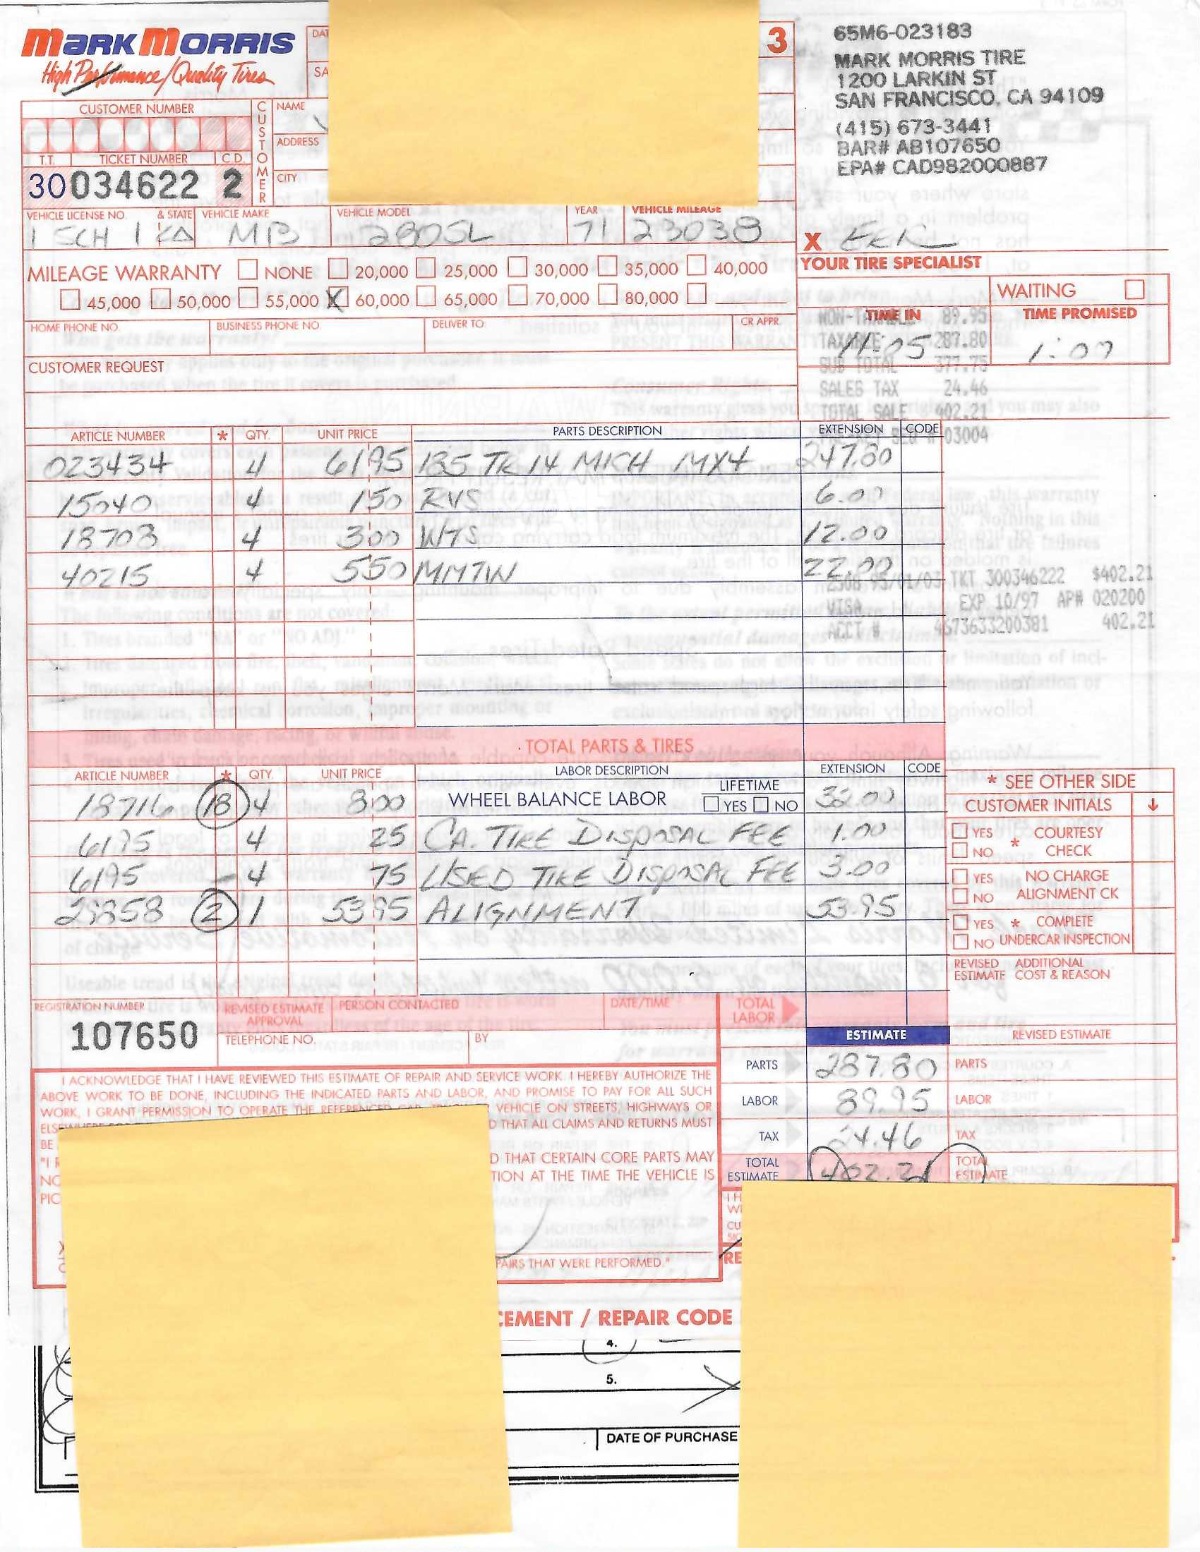 MARK MORRIS
High Performance/Quality Tires
3
65M6-023183
MARK MORRIS TIRE
1200 LARKIN ST
SAN FRANCISCO, CA 94109
(415) 673-3441
BAR# AB107650
EPA# CAD982000887
CUSTOMER NUMBER
CUSTOMER
NAME
ADDRESS
CITY
T.T. TICKET NUMBER C.D.
30 034622 2
VEHICLE LICENSE NO. & STATE VEHICLE MAKE VEHICLE MODEL YEAR VEHICLE MILEAGE
MB 280SL 71 23038
X
YOUR TIRE SPECIALIST
MILEAGE WARRANTY NONE 20,000 25,000 30,000 35,000 40,000
45,000 50,000 55,000 X 60,000 65,000 70,000 80,000
WAITING
TIME IN TIME PROMISED
1:00
HOME PHONE NO. BUSINESS PHONE NO. DELIVER TO: CR APPR.
NON-TAXABLE 89.95
TAXABLE 287.80
SUB TOTAL 377.75
SALES TAX 24.46
TOTAL SALE 402.21
03004
CUSTOMER REQUEST
ARTICLE NUMBER * QTY. UNIT PRICE PARTS DESCRIPTION EXTENSION CODE
023434 4 6195 185 TR 14 MICH MX4 247.80
15040 4 150 RVS 6.00
18703 4 300 WTS 12.00
40215 4 550 MMTW 22.00
2508 95/01/03 TKT 300346222 $402.21
VISA EXP 10/97 AP# 020200
ACCT # 4673633200381 402.21
TOTAL PARTS & TIRES
ARTICLE NUMBER * QTY. UNIT PRICE LABOR DESCRIPTION EXTENSION CODE
18716 18 4 8.00 WHEEL BALANCE LABOR LIFETIME YES NO 32.00
6195 4 25 CA. TIRE DISPOSAL FEE 1.00
6195 4 75 USED TIRE DISPOSAL FEE 3.00
28858 2 1 53.95 ALIGNMENT 53.95
* SEE OTHER SIDE
CUSTOMER INITIALS
YES NO * COURTESY CHECK
YES NO NO CHARGE ALIGNMENT CK
YES NO * COMPLETE UNDERCAR INSPECTION
REVISED ESTIMATE ADDITIONAL COST & REASON
REGISTRATION NUMBER
107650
REVISED ESTIMATE APPROVAL PERSON CONTACTED DATE/TIME
TELEPHONE NO. BY
TOTAL LABOR
ESTIMATE REVISED ESTIMATE
PARTS 287.80 PARTS
LABOR 89.95 LABOR
TAX 24.46 TAX
TOTAL ESTIMATE 402.21 TOTAL ESTIMATE
I ACKNOWLEDGE THAT I HAVE REVIEWED THIS ESTIMATE OF REPAIR AND SERVICE WORK. I HEREBY AUTHORIZE THE
ABOVE WORK TO BE DONE, INCLUDING THE INDICATED PARTS AND LABOR, AND PROMISE TO PAY FOR ALL SUCH
WORK. I GRANT PERMISSION TO OPERATE THE REFERENCED VEHICLE ON STREETS, HIGHWAYS OR
THAT ALL CLAIMS AND RETURNS MUST
BE
THAT CERTAIN CORE PARTS MAY
AT THE TIME THE VEHICLE IS
THAT WERE PERFORMED."
REPAIR CODE
4.
5.
DATE OF PURCHASE